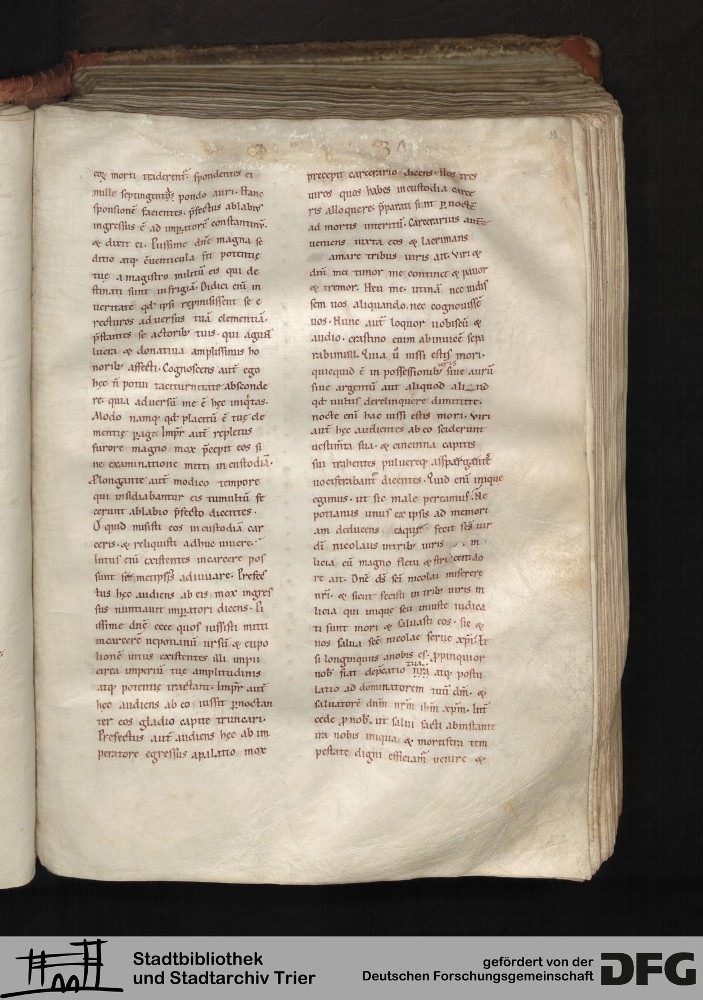 eos morti traderent. spondentes ei
mille septingentos pondo auri. Hanc
sponsionē facientes. p̄fectus ablabis
ingressus ē ad impatorē constantinū.
& dixit ei. Piissime dn̄e magna se
ditio atq; cuenticula fit potentię
tuę a magistro militū eis qui de
stinati sunt in frigiā. Didici eni in
veritate qd ipsi repmisissent se e
recturos adversus tuā clementiā.
p̄stantes se actorib; tuis. qui
& donativa amplissimis ho
norib; affecti. Cognoscens aut ego
hęc n̄ potui taciturnitate absconde
re. quia adversū me ē hęc iniq̇tas.
Modo namq; qd placitū ē tuę cle
mentię page. Impr aut repletus
furore magno mox p̄cepit eos si
ne examinatione mitti in custodiā.
Plongante aut modico tempore
qui insidiabantur eis tumultū fe
cerunt ablabio p̄fecto dicentes.
O quid misisti eos in custodiā car
ceris. & reliquisti adhuc vivere.
Intus eni existentes in carcere pos
sunt adiuvare. Prefec
tus hęc audiens ab eis mox ingres
sus nuntiavit impatori dicens. Pi
issime dn̄e. ecce quos iussisti mitti
in carcerē nepotianū ursū & eupo
lionē intus existentes illi impii
circa imperiū tuę amplitudinis
atq; potentię tractant. Impr aut
hęc audiens ab eo iussit p̄ noctan
ter eos gladio capite truncari.
Prefectus aut audiens hęc ab im
peratore egressus a palatio mox
precepit carcerario dicens. Hos tres
viros quos habes in custodia carce
ris alloquere. p̄parati sint p̱ noctē
ad mortis interitū. Carcerarius aut
veniens iuxta eos & lacrimans
amare tribus viris ait. Viri &
dn̄i mei timor me continet & pavor
& tremor. Heu me. utinā nec vidis
sem vos aliquando. nec cognovissē
vos. Nunc aut loquor vobiscū &
audio. crastino enim ab invicē sepa
rabimur. Quia ū iussi estis mori.
quicquid ē in possessionib; vr̄is sive aurū
sive argentū aut aliquod
qd vultis derelinquere dimittite.
nocte eni hac iussi estis mori. Viri
aut hęc audientes ab eo sciderunt
vestim̄ta sua. & cincinna capitis
sui trahentes pulvereq; asspargentes
vociferabant dicentes. Quid eni inique
egimus. ut sic male pereamus. Ne
potianus unus ex ipsis ad memori
am deducens eaque fecit scs vir
di nicolaus in trib; viris in
licia cū magno fletu &
re ait. Dne ds sci nicolai miserere
nri. & sicut fecisti in trib; viris in
licia qui inique seu iniuste iudica
ti sunt mori & salvasti eos. sic &
nos salva scē nicolae serve xp̄i. Et
si longinquus a nobis es. ppinquior
nob; fiat dep̄catio tua. atq; postu
latio ad dominatorem tuū dm. &
salvatorē dnm nrm ihm xpm. Int
cede p̱ nob; ut salvi facti ab instanti
ira nobis iniqua & mortifera tem
pestate digni efficiam̄ venire &
Stadtbibliothek
und Stadtarchiv Trier
gefördert von der
Deutschen Forschungsgemeinschaft
DFG